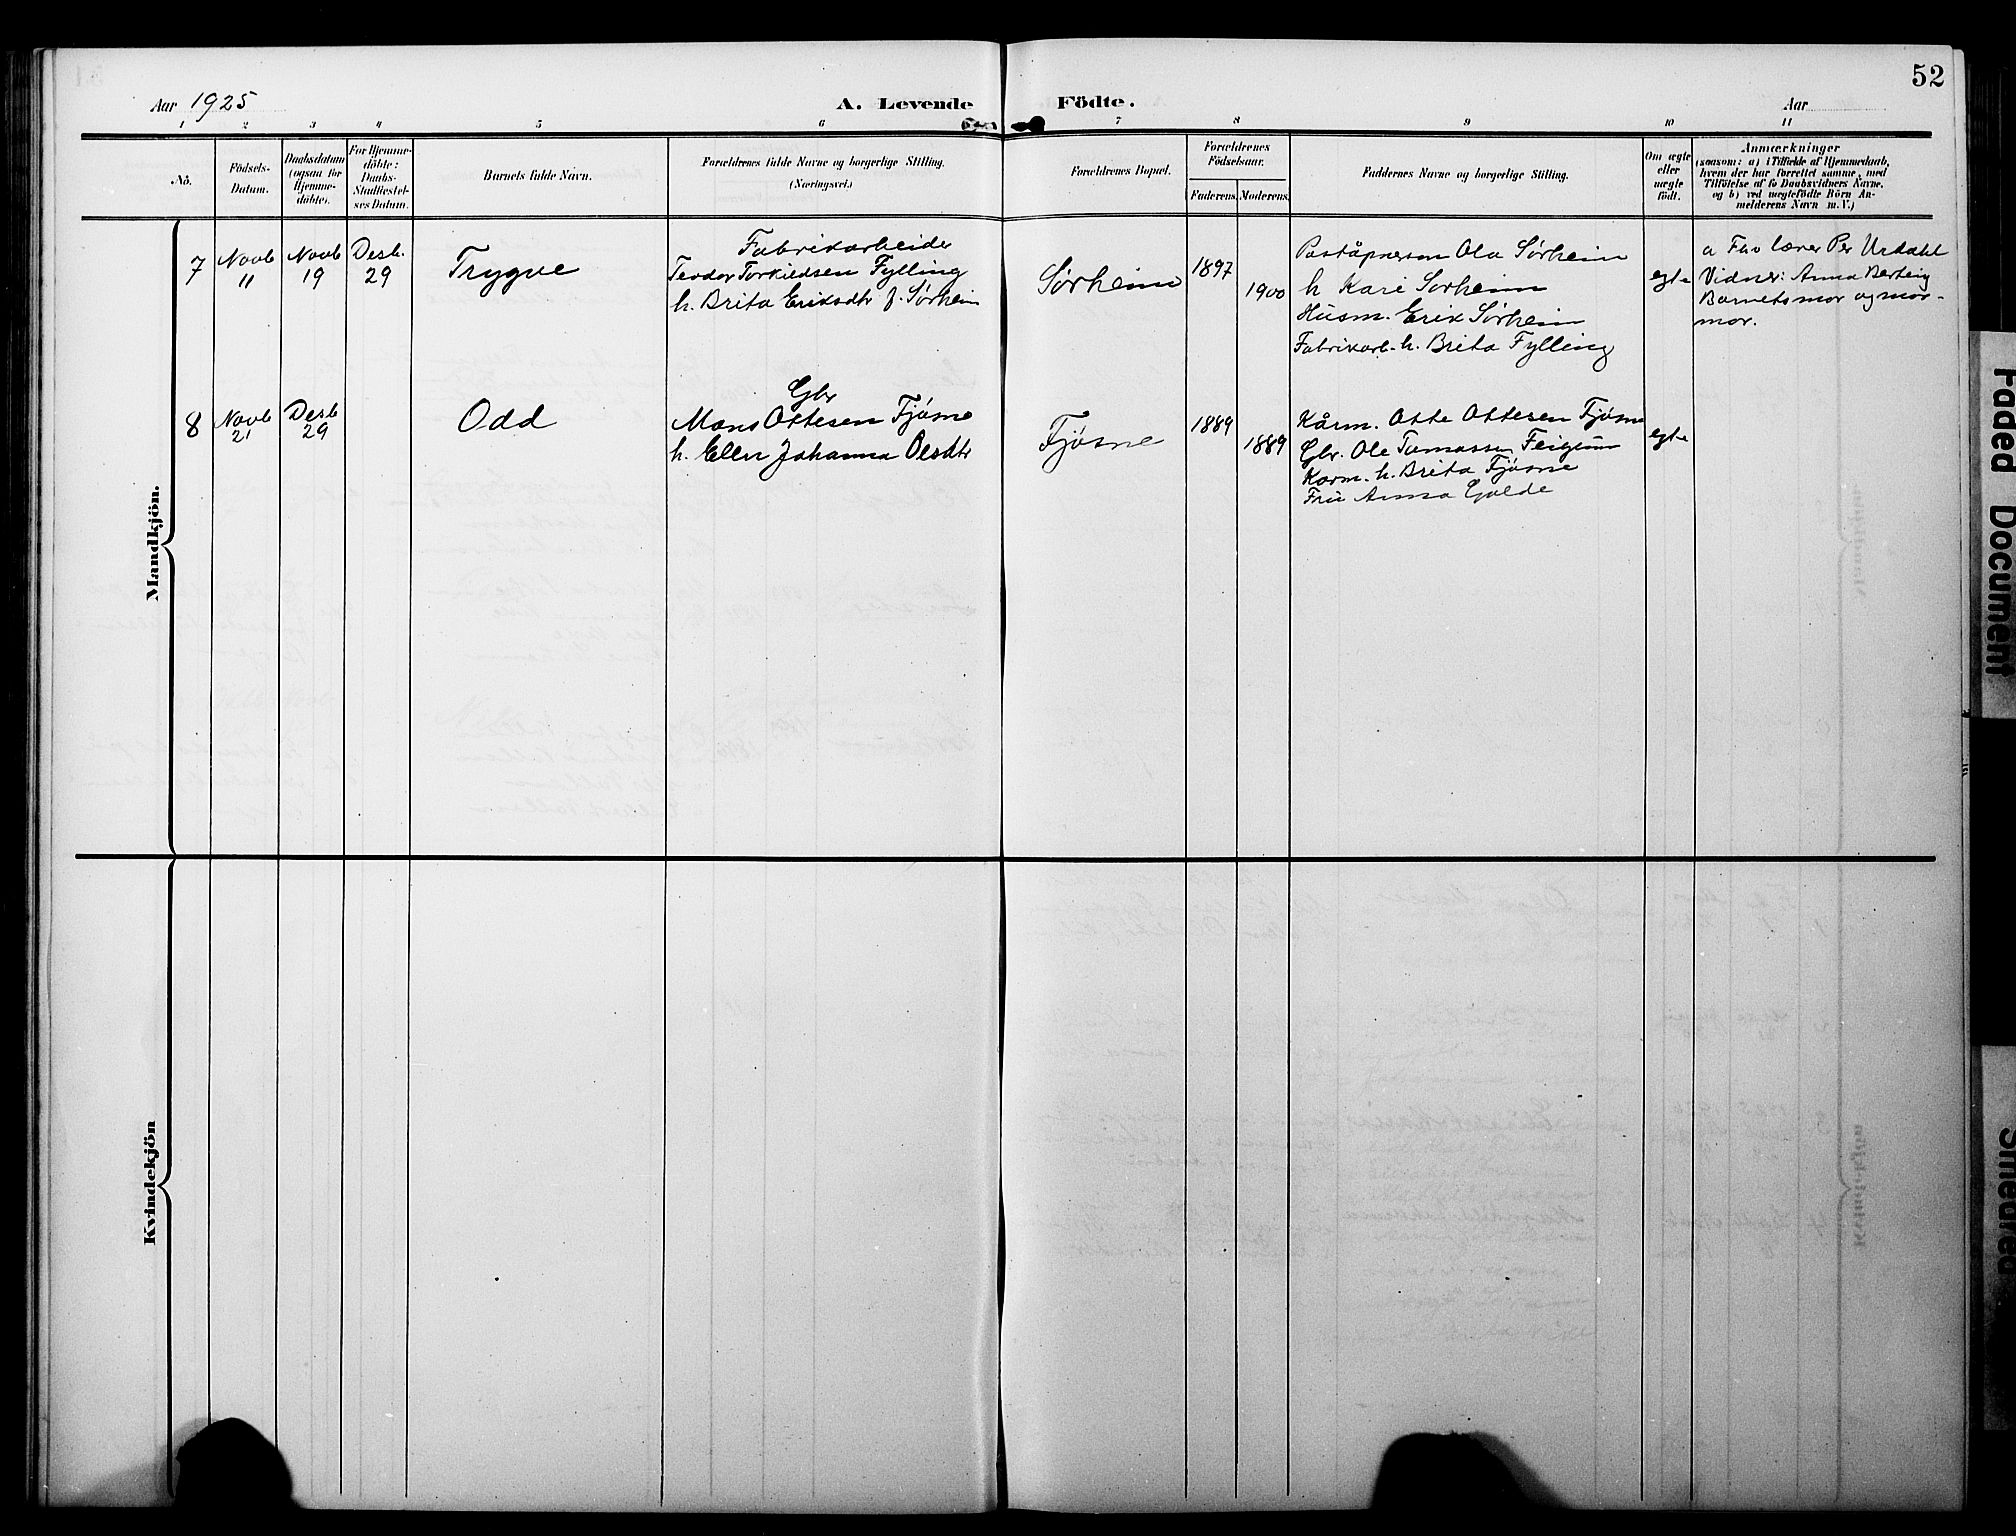 52
Aar 1925
A. Levende Födte.
Aar
1 2 3 4 5 6 7 8 9 10 11
No.
Födsels-
Datum.
Daabsdatum
(ogsaa for
Hjemme-
döbte).
For Hjemme-
döbte:
Daabs-
Stadfæstel-
ses Datum.
Barnets fulde Navn.
Forældrenes fulde Navne og borgerlige Stilling.
(Næringsvei.)
Forældrenes Bopæl.
Forældrenes
Födselsaar.
Faderens.
Moderens.
Faddernes Navne og borgerlige Stilling.
Om ægte
eller
uægte
født.
Anmærkninger
(saasom: a) i Tilfælde af Hjemmedaab,
hvem der har forrettet samme, med
Tilføielse af to Daabsvidners Navne,
og b) ved uægtefödte Börn An-
melderens Navn m. V.)
Mandkjön.
7
Novb
11
Novb
19
Desb.
29
Trygve
Fabrikarbeider
Teodor Torkieldsen Fylling
h. Brita Eriksdtr f. Sørheim
Sørheim
1897
1900
Poståpneren Ola Sørheim
h Kari Sørheim
Husm. Erik Sørheim
Fabrikarb. h. Brita Fylling
egte
a Fhv lærer Per Urdahl
Vidner: Anna Berteig
Barnets mor og mor-
mor.
8
Novb
21
Desb
29
Odd
Gbr
Mons Ottesen Fjøsne
h. Ellen Johanna Olsdtr
Fjøsne
1889
1889
Kårm. Otte Ottesen Fjøsne
Gbr. Ole Tomassen Feigum
Kårm. h. Brita Fjøsne
Fru Anna Galde
egte
Kvindekjön
Faded Document
Smeared